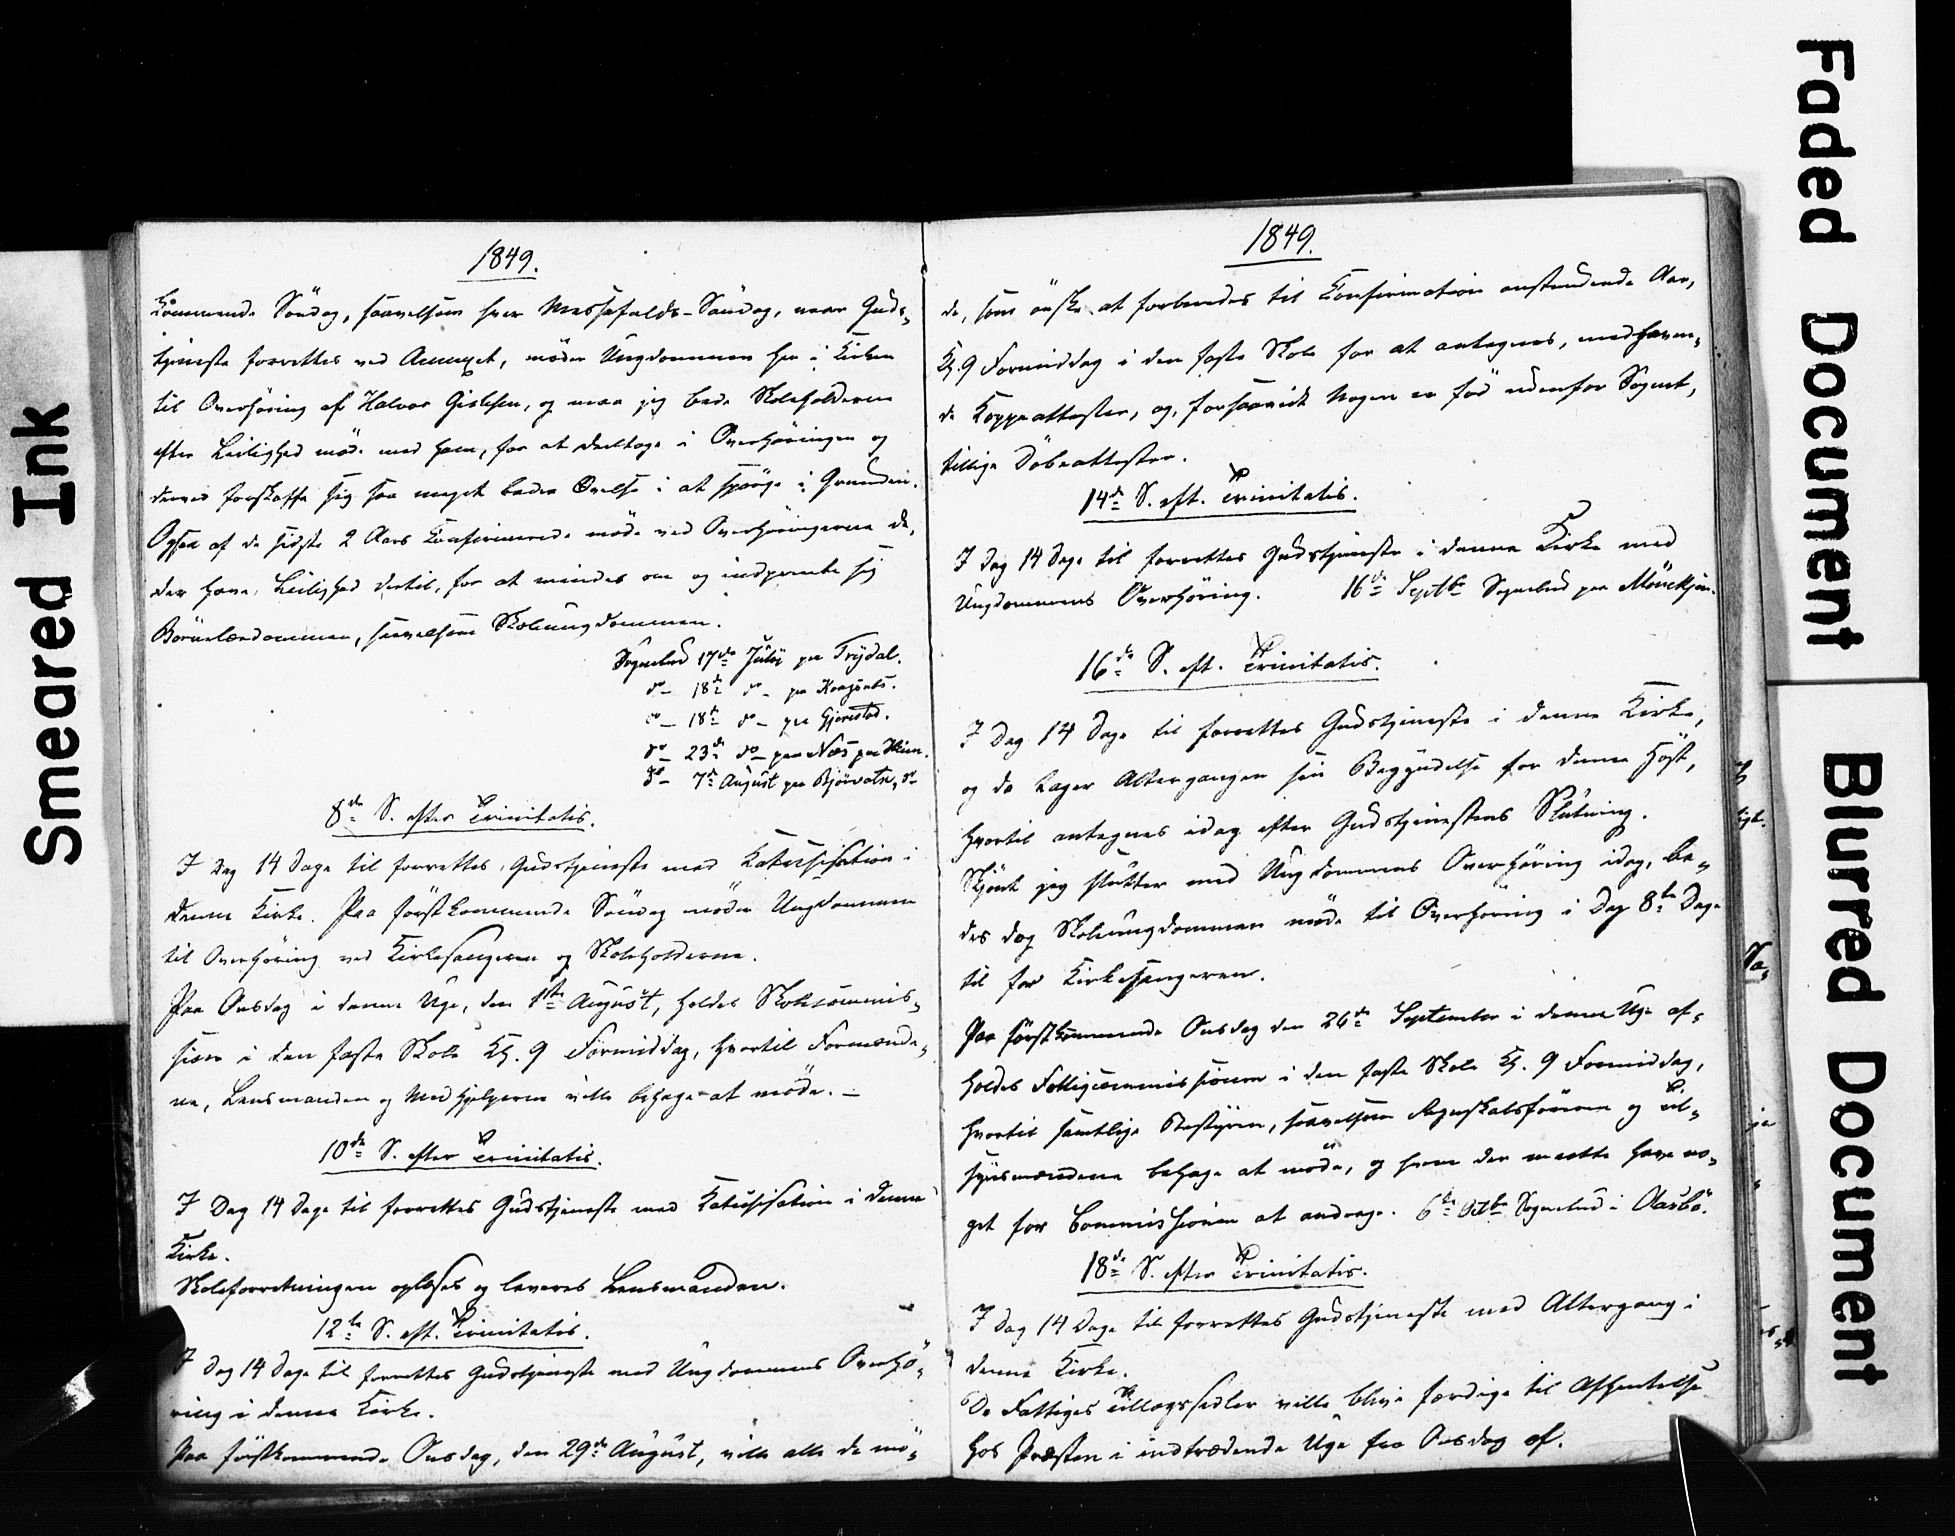 Smeared Ink
1849.
kommende Søndag, saavelsom hver Messefalds-Søndag, naar Guds-
tjeneste forrettes ved Annexet, møder Ungdommen her i Kirken
til Overhøring af Halvor Gislesen, og maa jeg bede Skoleholderne
efter Leilighed møde med ham, for at deeltage i Overhøringen og
derved forskaffe sig saa meget bedre Øvelse i at spørge i Grunden.
Ogsaa af de sidste 2 Aars Confirmerede møde ved Overhøringerne de,
der have Leilighed dertil, for at mindes om og indprente sig
Børnelærdommen, saavelsom Skoleungdommen.
Sognebud 17de July paa Trydal.
do - 18de do - paa
do - 18de do - paa Gjerestad.
do - 23de do - paa Næs paa
do - 7de August paa Bjørvatn, do
8de S. efter Trinitatis.
I Dag 14 Dage til forrettes Gudstjeneste med Katechisation i
denne Kirke. Paa førstkommende Søndag møder Ungdommen
til Overhøring ved Kirkesangeren og Skoleholderne.
Paa Onsdag i denne Uge, den 1ste August, holdes Skolecommis-
sion i den faste Skole Kl. 9 Formiddag, hvortil Formænde-
ne, Lensmanden og Medhjelperne ville behage at møde. -
10de S. efter Trinitatis.
I Dag 14 Dage til forrettes Gudstjeneste med Katechisation i denne
Kirke.
Skoleforretningen oplæses og leveres Lensmanden.
12te S. eft. Trinitatis.
I dag 14 Dage til forrettes Gudstjeneste med Ungdommens Overhø-
ring i denne Kirke.
Paa førstkommende Onsdag, den 29de August, ville alle de mø-
1849.
de, som ønske at forberedes til Confirmation anstundende Aar,
Kl. 9 Formiddag i den faste Skole for at antegnes, medhaven-
de Koppeattester, og, forsaavidt Nogen er fød udenfor Sognet,
tillige Døbeattester.
14de S. eft. Trinitatis.
I dag 14 Dage til forrettes Gudstjeneste i denne Kirke med
Ungdommens Overhøring. 16de Septbr Sognebud paa
16de S. eft. Trinitatis.
I Dag 14 Dage til forrettes Gudstjeneste i denne Kirke,
og da tager Altergangen sin Begyndelse for denne Høst,
hvortil antegnes idag efter Gudstjenestens Slutning.
Skjønt jeg slutter med Ungdommens Overhøring idag, be-
des dog Skoleungdommen møde til Overhøring i Dag 8te Dage
til for Kirkesangeren.
Paa førstkommende Onsdag den 26de September i denne Uge af-
holdes Fattigcommissionen i den faste Skole Kl. 9 Formiddag,
hvortil samtlige Bestyrere, saavelsom Regnskabsføreren og Til-
synsmændene behage at møde, og hvem der maatte have no-
get for Commissionen at andrage. 6te Octbr Sognebud i Aasbø.
18de S. efter Trinitatis.
I dag 14 Dage til forrettes Gudstjeneste med Altergang i
denne Kirke.
De Fattiges Tillægssedler ville blive færdige til Afhentelse
hos Præsten i indtrædende Uge fra Onsdag af.
Faded Document
Blurred Document